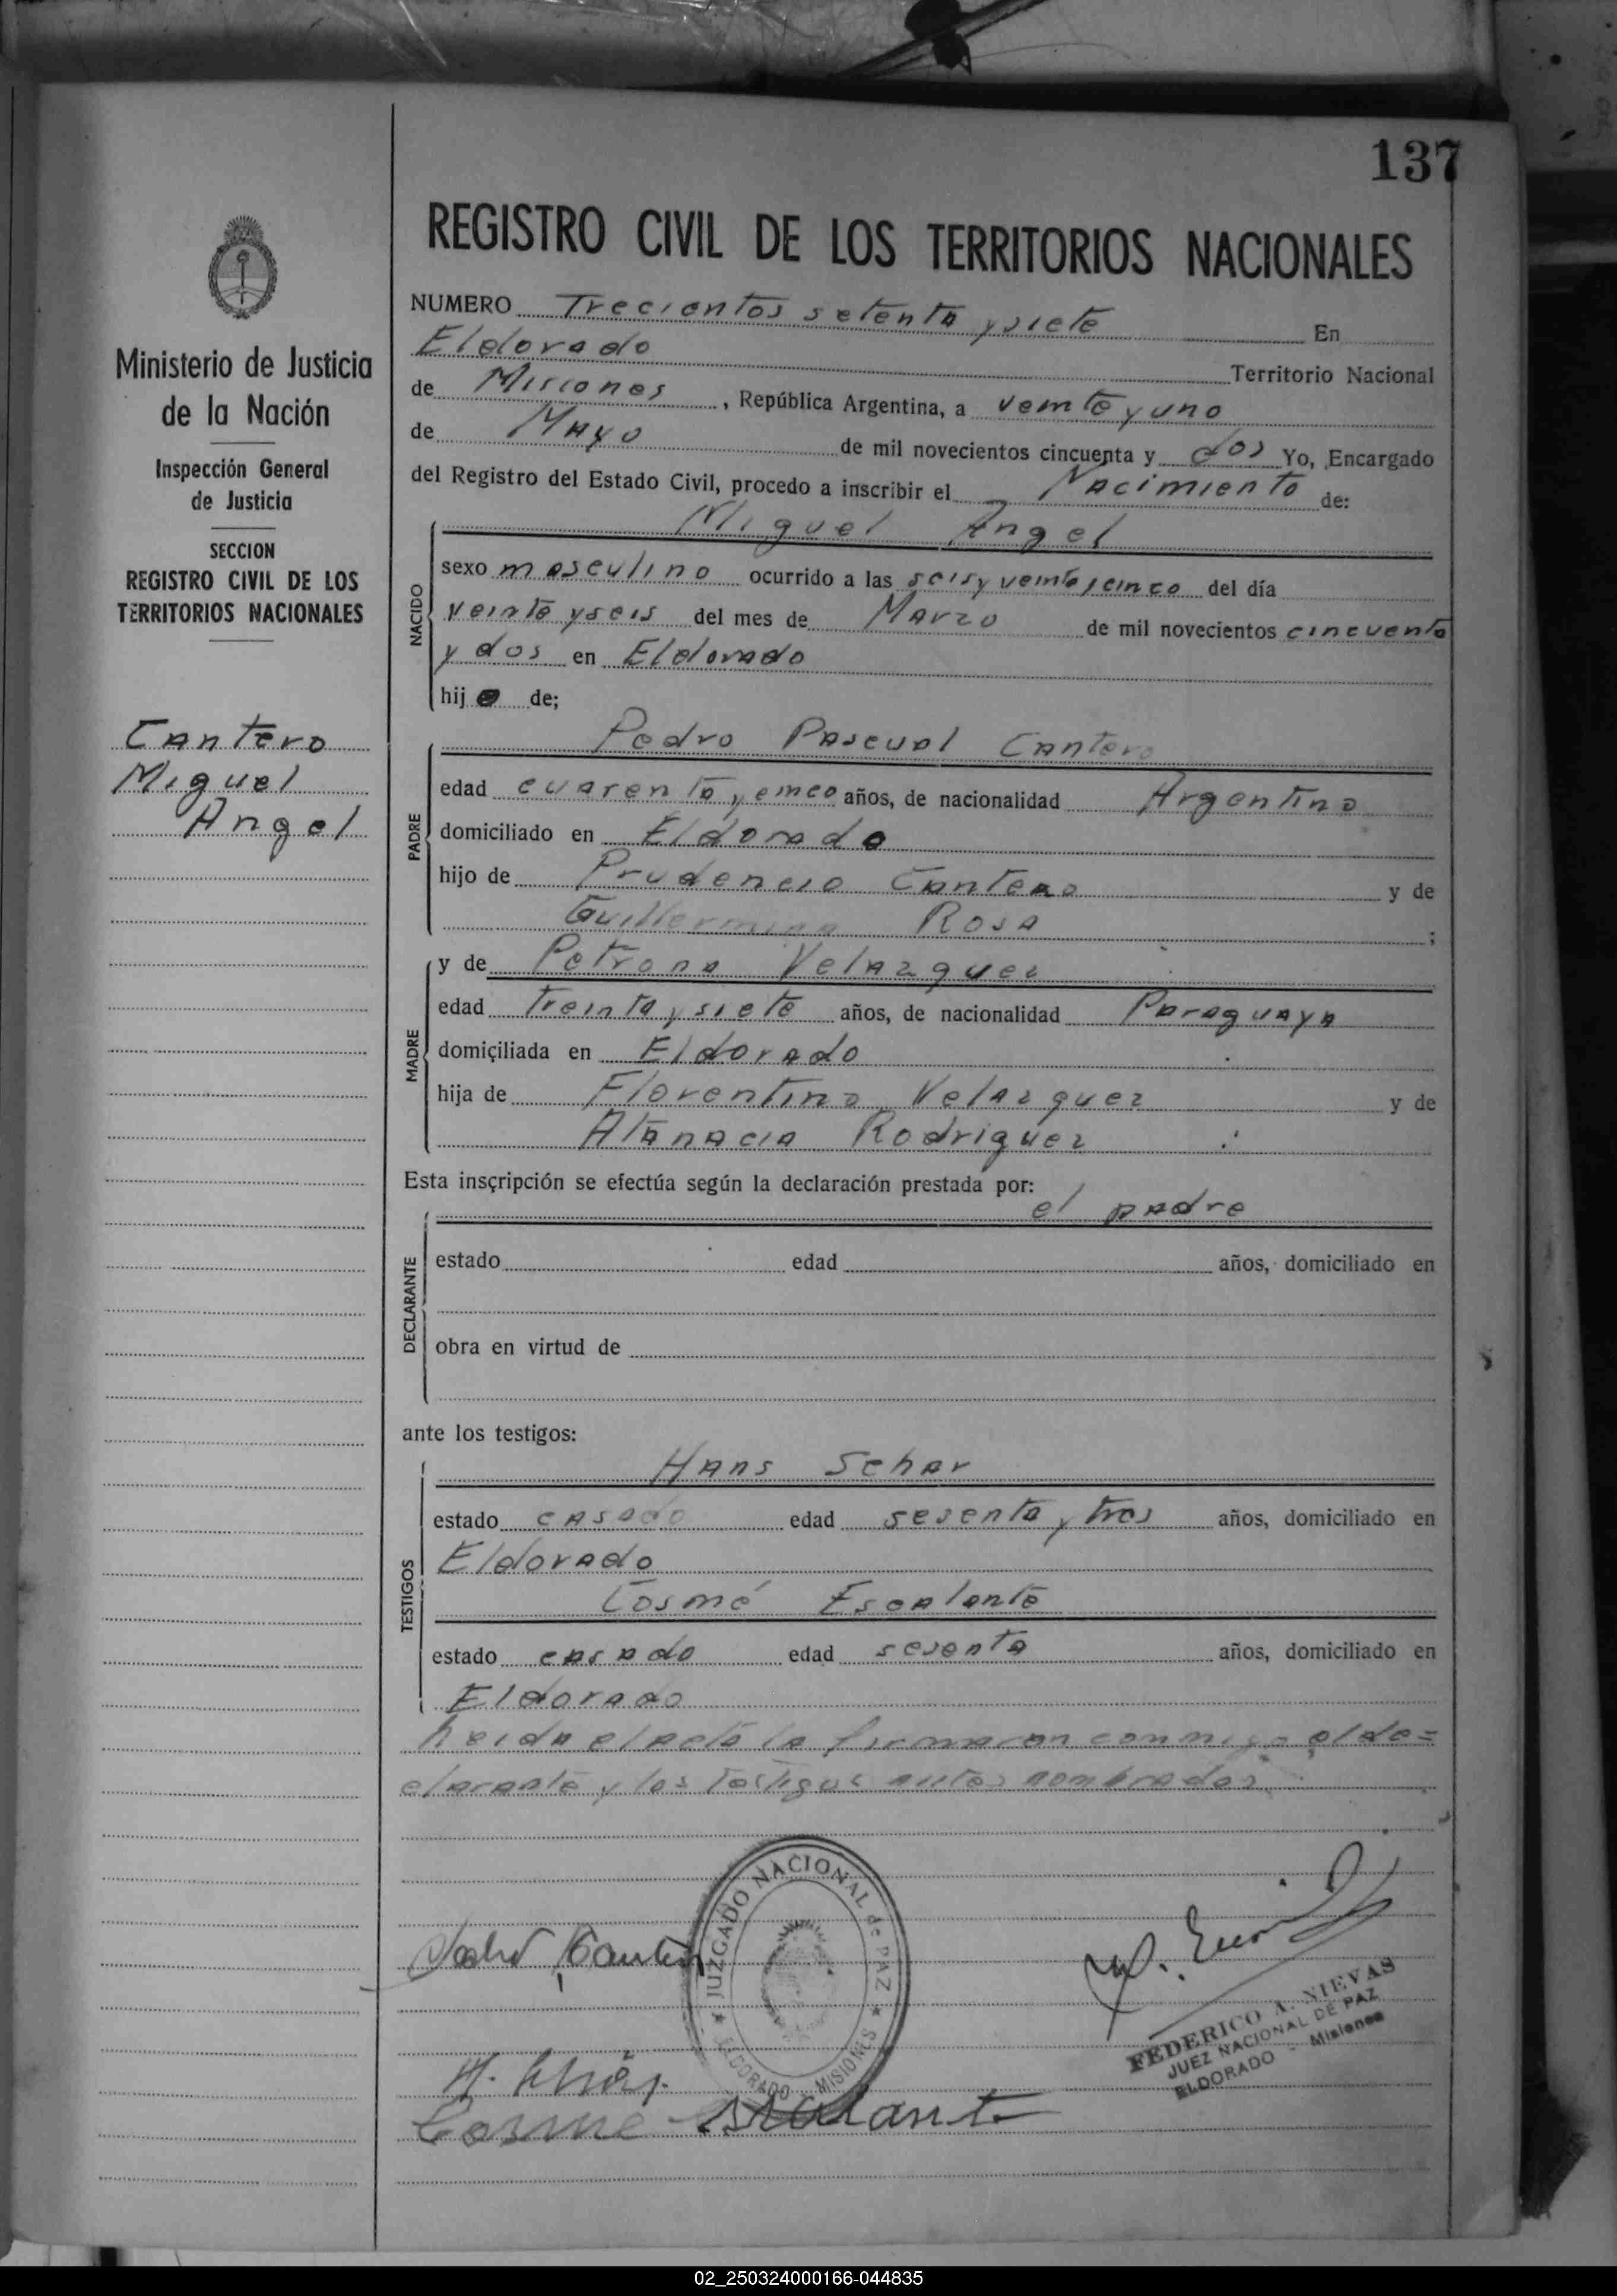 137
REGISTRO CIVIL DE LOS TERRITORIOS NACIONALES
Ministerio de Justicia
de la Nación
Inspección General
de Justicia
SECCION
REGISTRO CIVIL DE LOS
TERRITORIOS NACIONALES
Cantero
Miguel
Angel
NUMERO Trecientos setenta y siete En
Eldorado Territorio Nacional
de Misiones, República Argentina, a veinte y uno
de Mayo de mil novecientos cincuenta y dos Yo, Encargado
del Registro del Estado Civil, procedo a inscribir el Nacimiento de:
NACIDO
Miguel Angel
sexo masculino ocurrido a las seis y veinte y cinco del día
veinte y seis del mes de Marzo de mil novecientos cincuenta
y dos en Eldorado
hijo de;
PADRE
Pedro Pascual Cantero
edad cuarenta y cinco años, de nacionalidad Argentino
domiciliado en Eldorado
hijo de Prudencio Cantero y de
Guillermina Rosa ;
MADRE
y de Petrona Velazquez
edad treinta y siete años, de nacionalidad Paraguaya
domiciliada en Eldorado
hija de Florentino Velazquez y de
Atanacia Rodriguez
Esta inscripción se efectúa según la declaración prestada por:
DECLARANTE
el padre
estado edad años, domiciliado en
obra en virtud de
ante los testigos:
TESTIGOS
Hans Schar
estado casado edad sesenta y tres años, domiciliado en
Eldorado
Cosmé Escalante
estado casado edad sesenta años, domiciliado en
Eldorado
Leida el acta la firmaron conmigo el de=
clarante y los testigos antes nombrados
JUZGADO NACIONAL de PAZ
ELDORADO MISIONES
Pedro Cantero
FEDERICO A. NIEVAS
JUEZ NACIONAL DE PAZ
ELDORADO - Misiones
Cosme Escalante
02_250324000166-044835